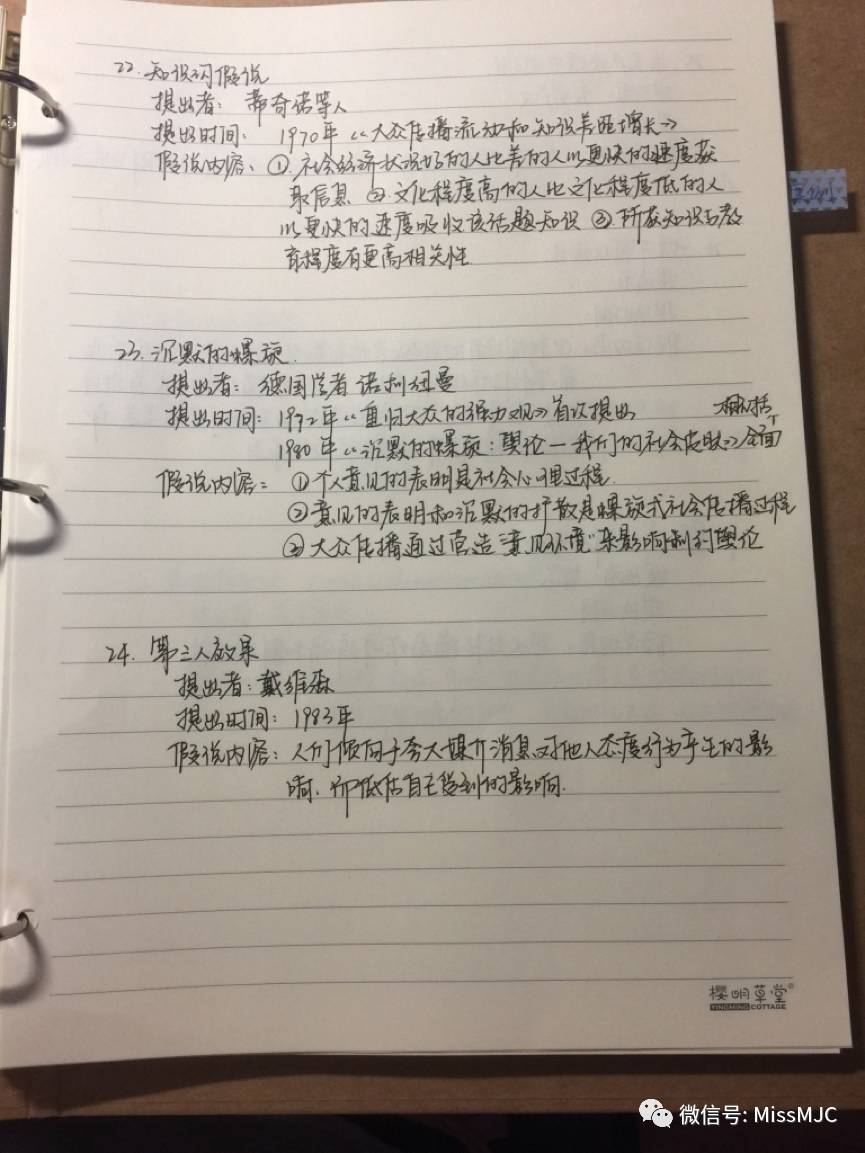 22. 知识沟假说
提出者: 蒂奇诺等人
提出时间: 1970年《大众传播流动和知识差距增长》
假说内容: ①社会经济状况好的人比差的人以更快的速度获
取信息 ②文化程度高的人比文化程度低的人
以更快的速度吸收该话题知识 ③所获知识与教
育程度有更高相关性
23. 沉默的螺旋.
提出者: 德国学者 诺利纽曼
提出时间: 1972年《重归大众的强力观》首次提出
1980年《沉默的螺旋: 舆论一我们的社会皮肤》全面
概括
假说内容: ①个人意见的表明是社会心理过程.
②意见的表明和沉默的扩散是螺旋式社会传播过程
③大众传播通过营造“意见环境”来影响制约舆论
24. 第三人效果
提出者: 戴维森
提出时间: 1983年
假说内容: 人们倾向于夸大媒介消息对他人态度行为产生的影
响、而低估自己受到的影响.
樱明草堂®
YINGMING COTTAGE
微信号: MissMJC